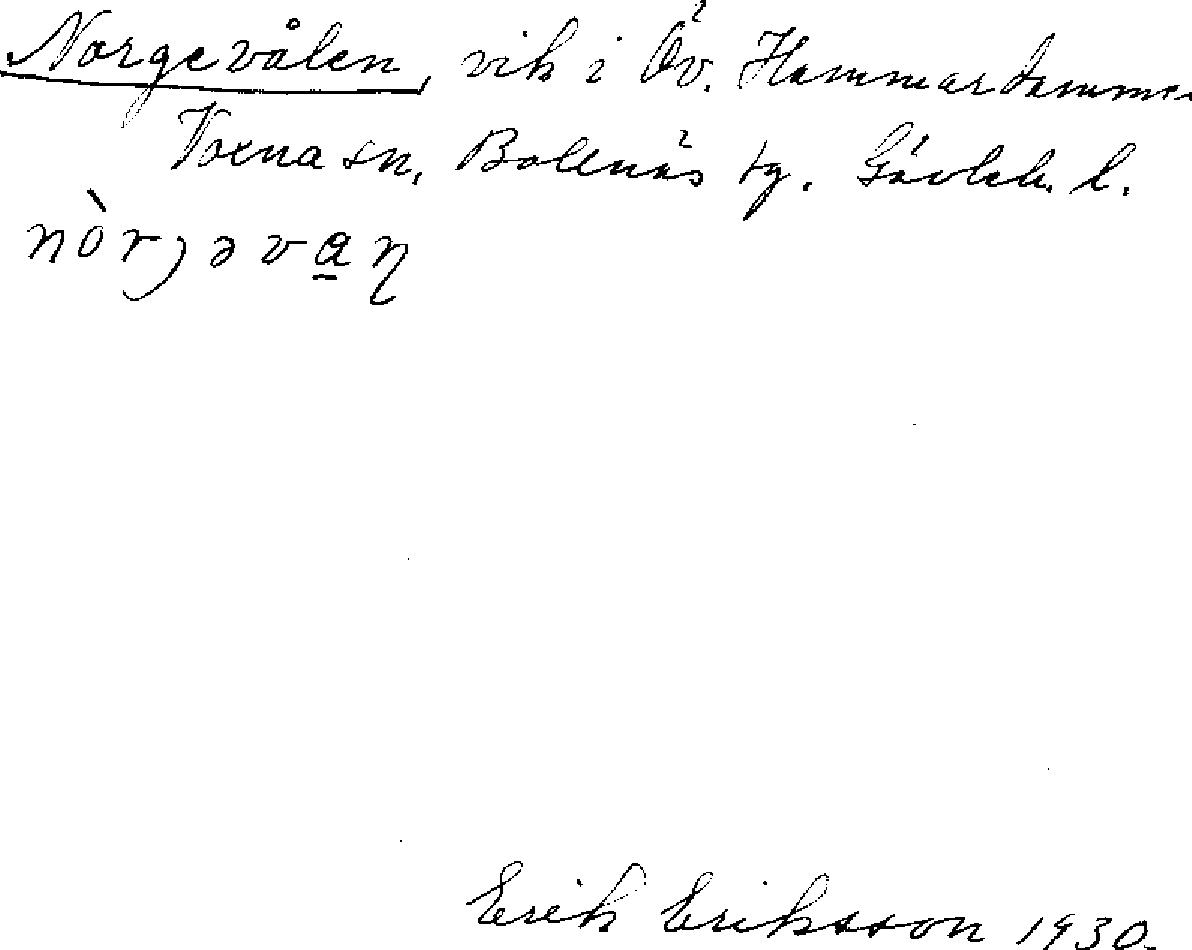 Norgevålen, vik i Öv. Hammardammen
Voxna sn, Bollnäs tg. Gävleb. l.
nòrȷəvaɳ
Erik Eriksson 1930.